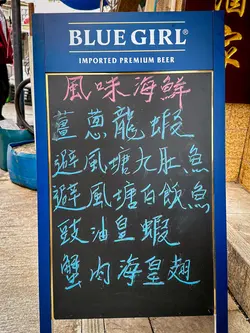 BLUE GIRL®
IMPORTED PREMIUM BEER
風味海鮮
薑蔥龍蝦
避風塘九肚魚
避風塘白飯魚
豉油皇蝦
蟹肉海皇翅
酒家